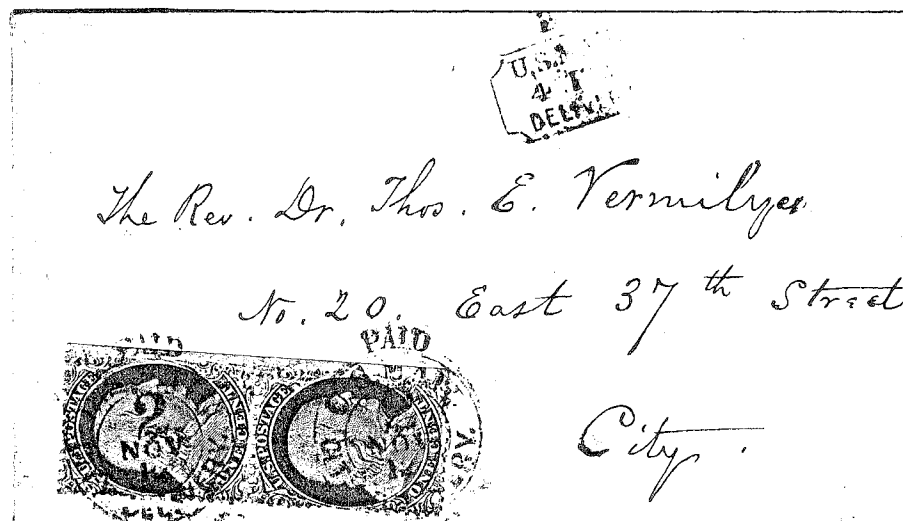 U.S.
DELIV
The Rev. Dr. Thos. E. Vermilyea
No. 20. East 37th Street
PAID
PAID
U.S. POSTAGE
NOV
U.S. POSTAGE
NOV
City.